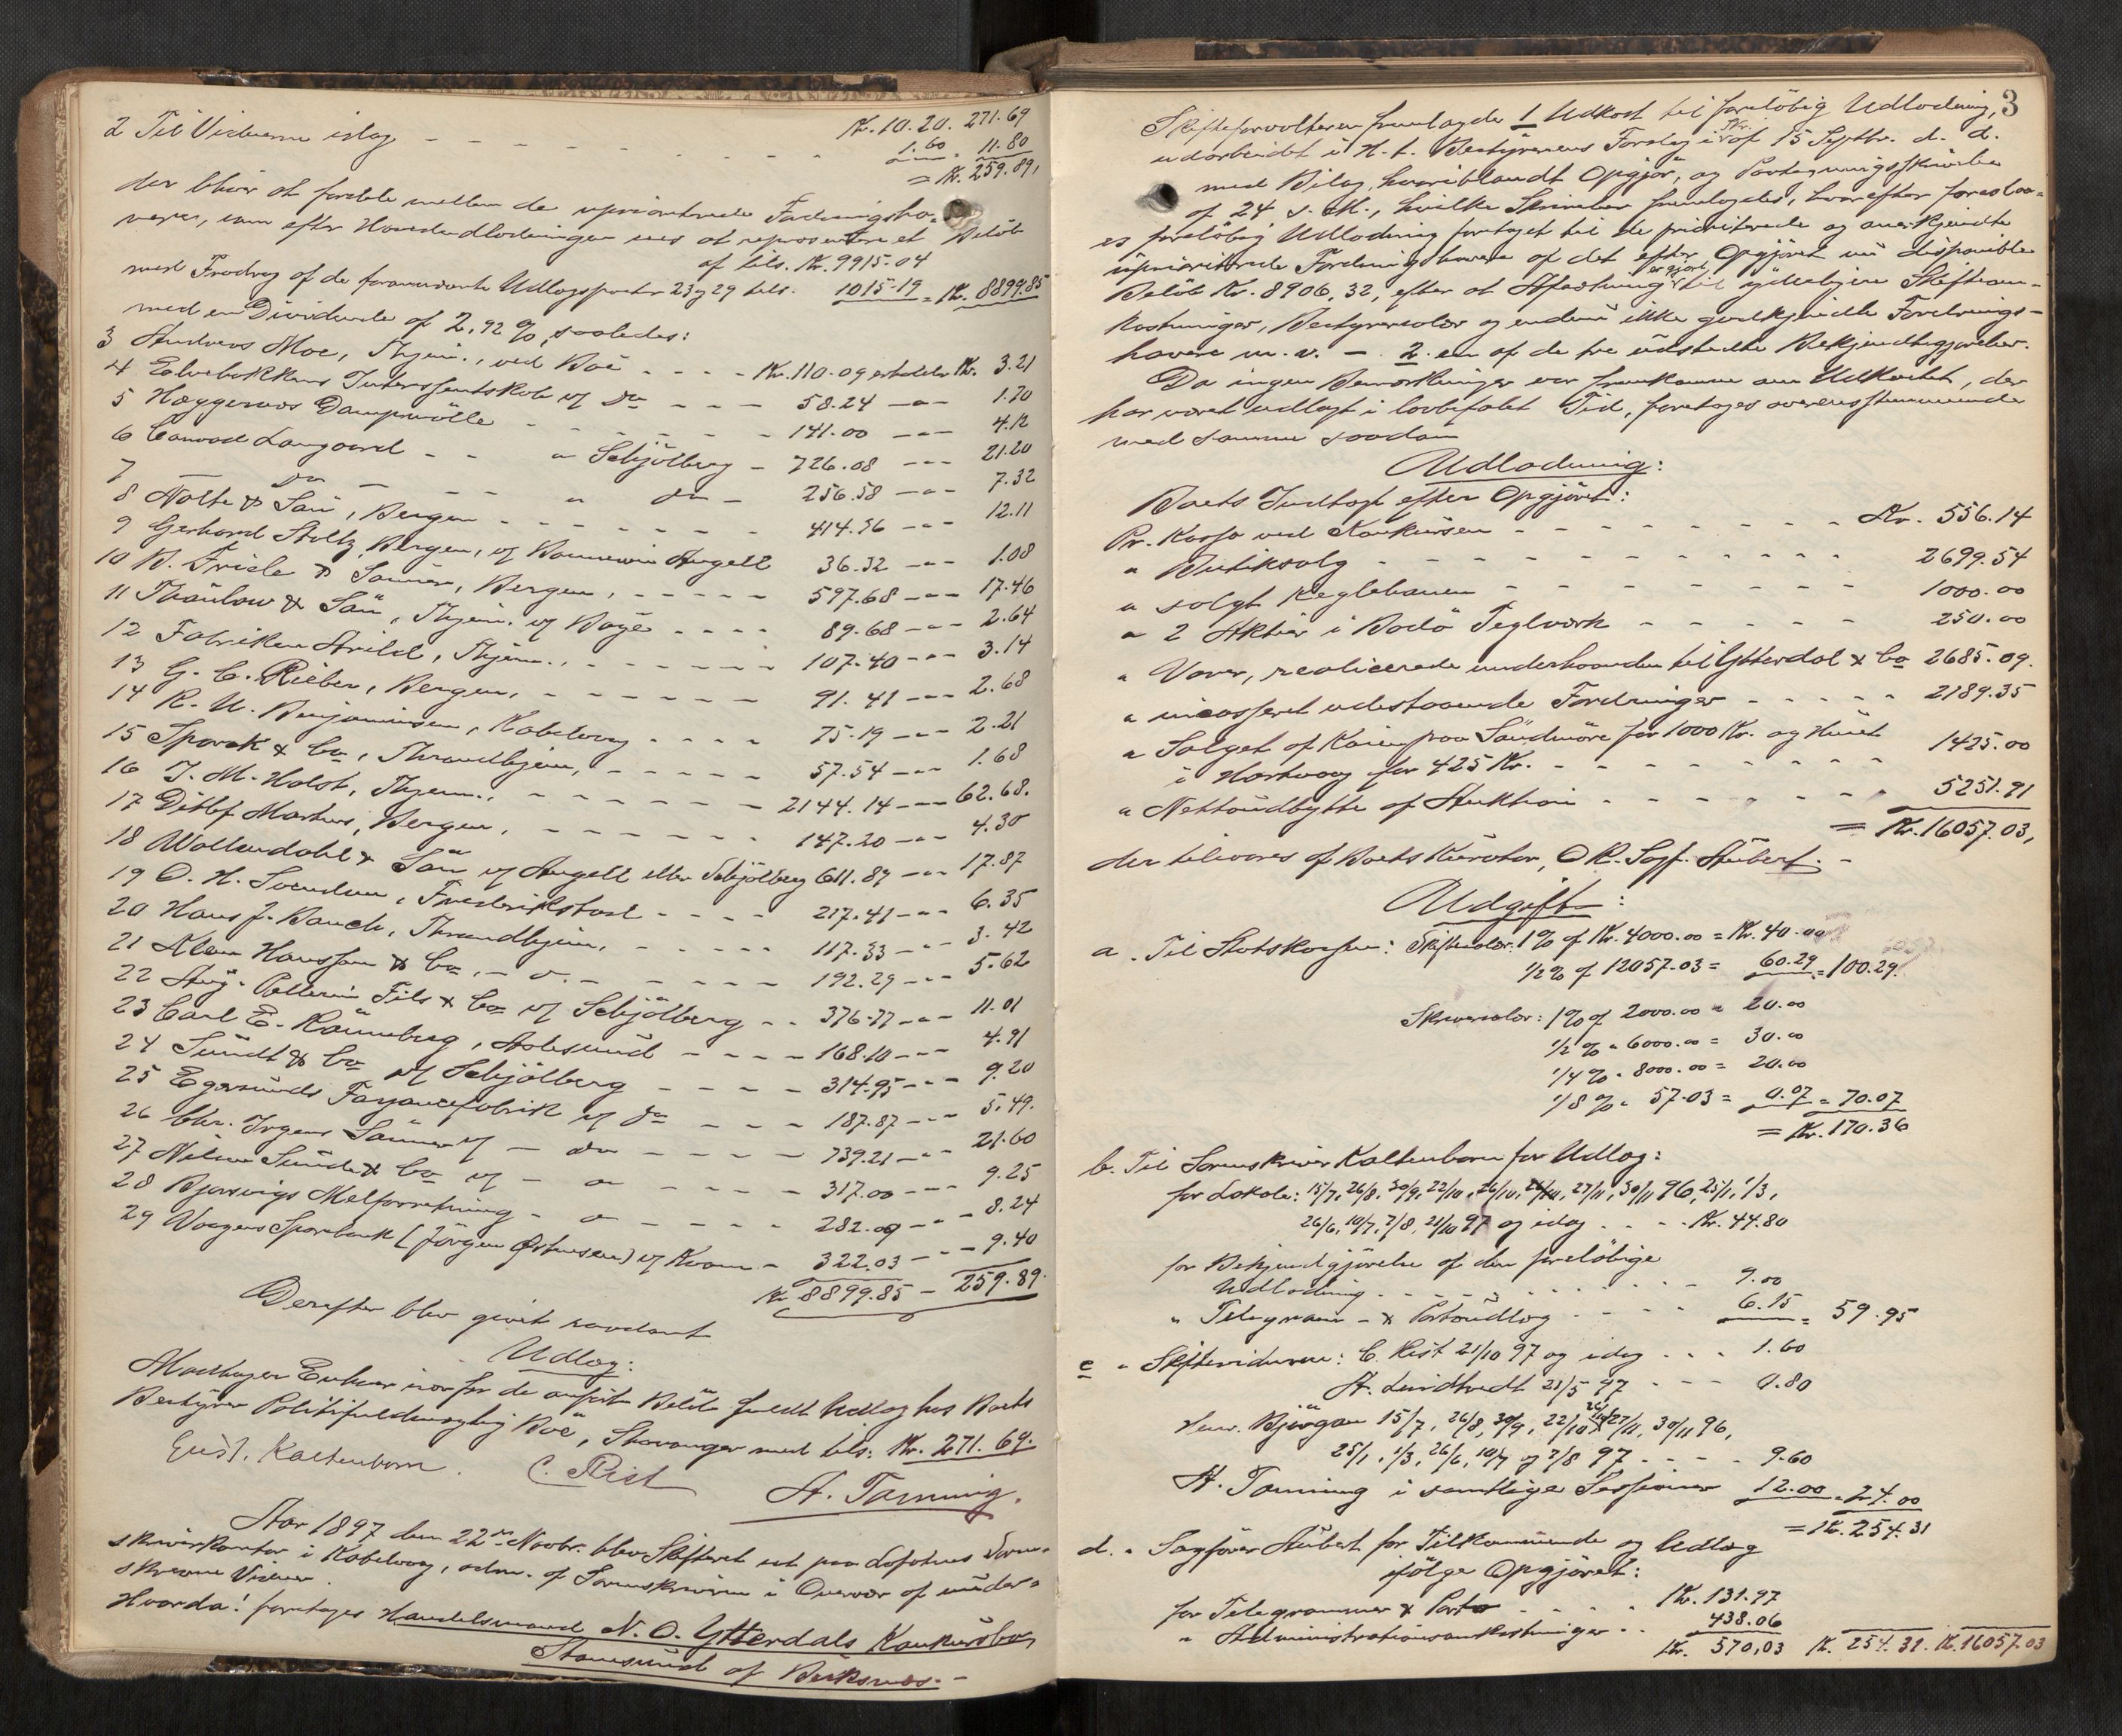 2 Til Vidnerne idag - - - Kr. 10.20. 271.69
1.60 = 11.80
= Kr. 259.89,
der bliver at fordele mellem de uprioriterede Fordringsha-
vere, som efter Hovedudlodningen sees at repræsentere et Beløb
af tils. Kr. 9915.04
med Fradrag af de foranværende Udlagsposter 23 og 29 tils. 1015.19 = Kr. 8899.85
med en Dividende af 2,92 %, saaledes:
3 Andreas Moe, Thjem., ved Boë - - - - Kr. 110.- og erholder Kr. 3.21
4 Elvebakkens Interessentskab v/ Do - - - 58.24 - " - 1.70
5 Haggernæs Dampmölle - - - 141.00 - " - 4.12
6 Conrad Langaard - - " Schjölberg - 726.08 - " - 21.20
7 Do - - - " do - 256.58 - " - 7.32
8 Nolte & Sön, Bergen - - - 414.56 - " - 12.11
9 Gerhard Stoltz, Bergen, v/ Angell 36.32 - " - 1.08
10 B. Friele & Sönner, Bergen, - - - 597.68 - " - 17.46
11 Thaulow & Sön, Thjem. v/ Boye - - - 89.68 - " - 2.64
12 Fabriken Arild, Thjem., - - - 107.40 - " - 3.14
13 G. C. Rieber, Bergen, - - - 91.41 - " - 2.68
14 R. U. Benjaminsen, Kabelvaag - - - 75.19 - " - 2.21
15 Spørck & Co, Throndhjem, - - - 57.54 - " - 1.68
16 J. M. Holst, Thjem., - - - 2144.14 - " - 62.68.
17 Ditlef Martens, Bergen, - - - 147.20 - " - 4.30
18 Wollendahl & Sön v/ Angell eller Schjölberg 611.89 - " - 17.87
19 O. H. Svendsen, Frederikstad - - - 217.41 - " - 6.35
20 Hans J. Bauck, Throndhjem, - - - 117.33 - " - 3.42
21 Klem Hansson & Co, - " - 192.29 - " - 5.62
22 Aug. Pellerin Fils & Co v/ Schjölberg - - 376.77 - " - 11.01
23 Carl E. Rönneberg, Aalesund - - - 168.10 - " - 4.91
24 Sundt & Co v/ Schjölberg - - - 314.95 - " - 9.20
25 Egersunds Fayancefabrik v/ do - - - 187.87 - " - 5.49.
26 Chr. Irgens Sönner v/ - do - - - 739.21 - " - 21.60
27 Nilsen Sunde & Co v/ - " - - - 317.00 - " - 9.25
28 Bjorsvigs Melforretning - " - - - 282.09 - " - 8.24
29 Vaagens Sparebank (Jörgen Östensen) v/ Kvam - 322.03 - " - 9.40
Kr. 8899.85 - 259.89.
Derefter blev givet saadant
Udlæg:
Modtager Enhver især for de anførte Beløb fuldt Udlæg hos Boets
Bestyrer Politifuldmægtig Boë, Stavanger med tils: Kr. 271.69.
Eust. Kaltenborn. C. Rist A. Tanning.
Aar 1897 den 22de Novbr. blev Skifteret sat paa Lofotens Soren-
skriverkontor i Kabelvaag, adm. af Sorenskriveren i Overvær af under-
skrevne Vidner.
Hvorda! foretoges Handelsmand N. O. Ytterdals Konkursbo,
Stamsund af Buksnæs. -
3
Skifteforvalteren fremlagde 1 Udkast til foreløbig Udlodning,
udarbeidet i H. t. Bestyrerens Forslag i Skr. af 15 Septbr. d. A.
med Bilag, hvoriblandt Opgjör, og Paategningsskrivelse
af 24 s. M., hvilke Skrivelser fremlagdes, hvorefter foreslaa-
es foreløbig Udlodning foretaget til de prioriterede og anerkjendte
uprioriterede Fordringshavere af det efter Opgjöret nu disponible
Beløb Kr. 8906,32, efter at Afsætning er gjort til yderligere Skifteom-
kostninger, Bestyrersalær og endnu ikke godkjendte Fordrings-
havere m. v. - 2 en af de tre udstedte Bekjendtgjørelser.
Da ingen Bemærkninger var fremkomne om Udkastet, der
har været udlagt i lovbefalet Tid, foretoges overensstemmende
med samme saadan
Udlodning:
Boets Indtægt efter Opgjöret:
Pr. Kassa ved Konkursen - - - Kr. 556.14
" Butiksalg - - - 2699.54
" solgt Keglebanen - - - 1000.00
" 2 Aktier i Bodö Teglværk - - - 250.00
" Varer, realicerede underhaanden til Ytterdal & Co 2685.09.
" incasseret udestaaende Fordringer - - - 2189.35
" Salget af Kaien paa Söndmöre for 1000 Kr. og Huset
i Hartvaag for 425 Kr. - - - 1425.00
" Nettoudbytte af Auktion - - - 5251.91
= Kr. 16057.03,
der tilsvares af Boets Kurator, O R. Sagf. Stubert. -
Udgift:
a. Til Statskassen: Skiftesalær: 1% af Kr. 4000.00 = Kr. 40.00
1/2 % af 12057.03 = 60.29 = 100.29.
Skriversalær: 1% af 2000.00 = 20.00
1/2 % " 6000.00 = 30.00
1/4 % " 8000.00 = 20.00
1/8 % " 57.03 = 0.07 = 70.07
= Kr. 170.36
b. Til Sorenskriver Kaltenborn for Udlæg:
for Lokale: 15/7, 26/8, 30/9, 22/10, 26/10, 27/11, 30/11 96, 25/1, 1/3,
26/6, 10/7, 7/8, 21/10 97 og idag - - - Kr. 44.80
for Bekjendtgjørelse af den foreløbige
Udlodning - - - 9.00
" Telegram - & Portoudlæg - - - 6.15 = 59.95
c " Skiftevidnerne: C. Rist 21/10 97 og idag - - - 1.60
A. Lindtvedt 21/5 97 - - - 0.80
Henr. Björgan 15/7, 26/8, 30/9, 22/10, 26/10, 27/11, 30/11 96,
25/1, 1/3, 26/6, 10/7 og 7/8 97 - - - 9.60
A. Tanning i samtlige Sessioner 12.00 = 24.00
= Kr. 254.31
d. " Sagfører Stubert for Tilkommende og Udlæg
ifölge Opgjöret:
for Telegrammer & Porto - - - Kr. 131.97
" Administrationsomkostninger - - 438.06
Kr. 570,03 Kr. 254.31. Kr. 16057.03